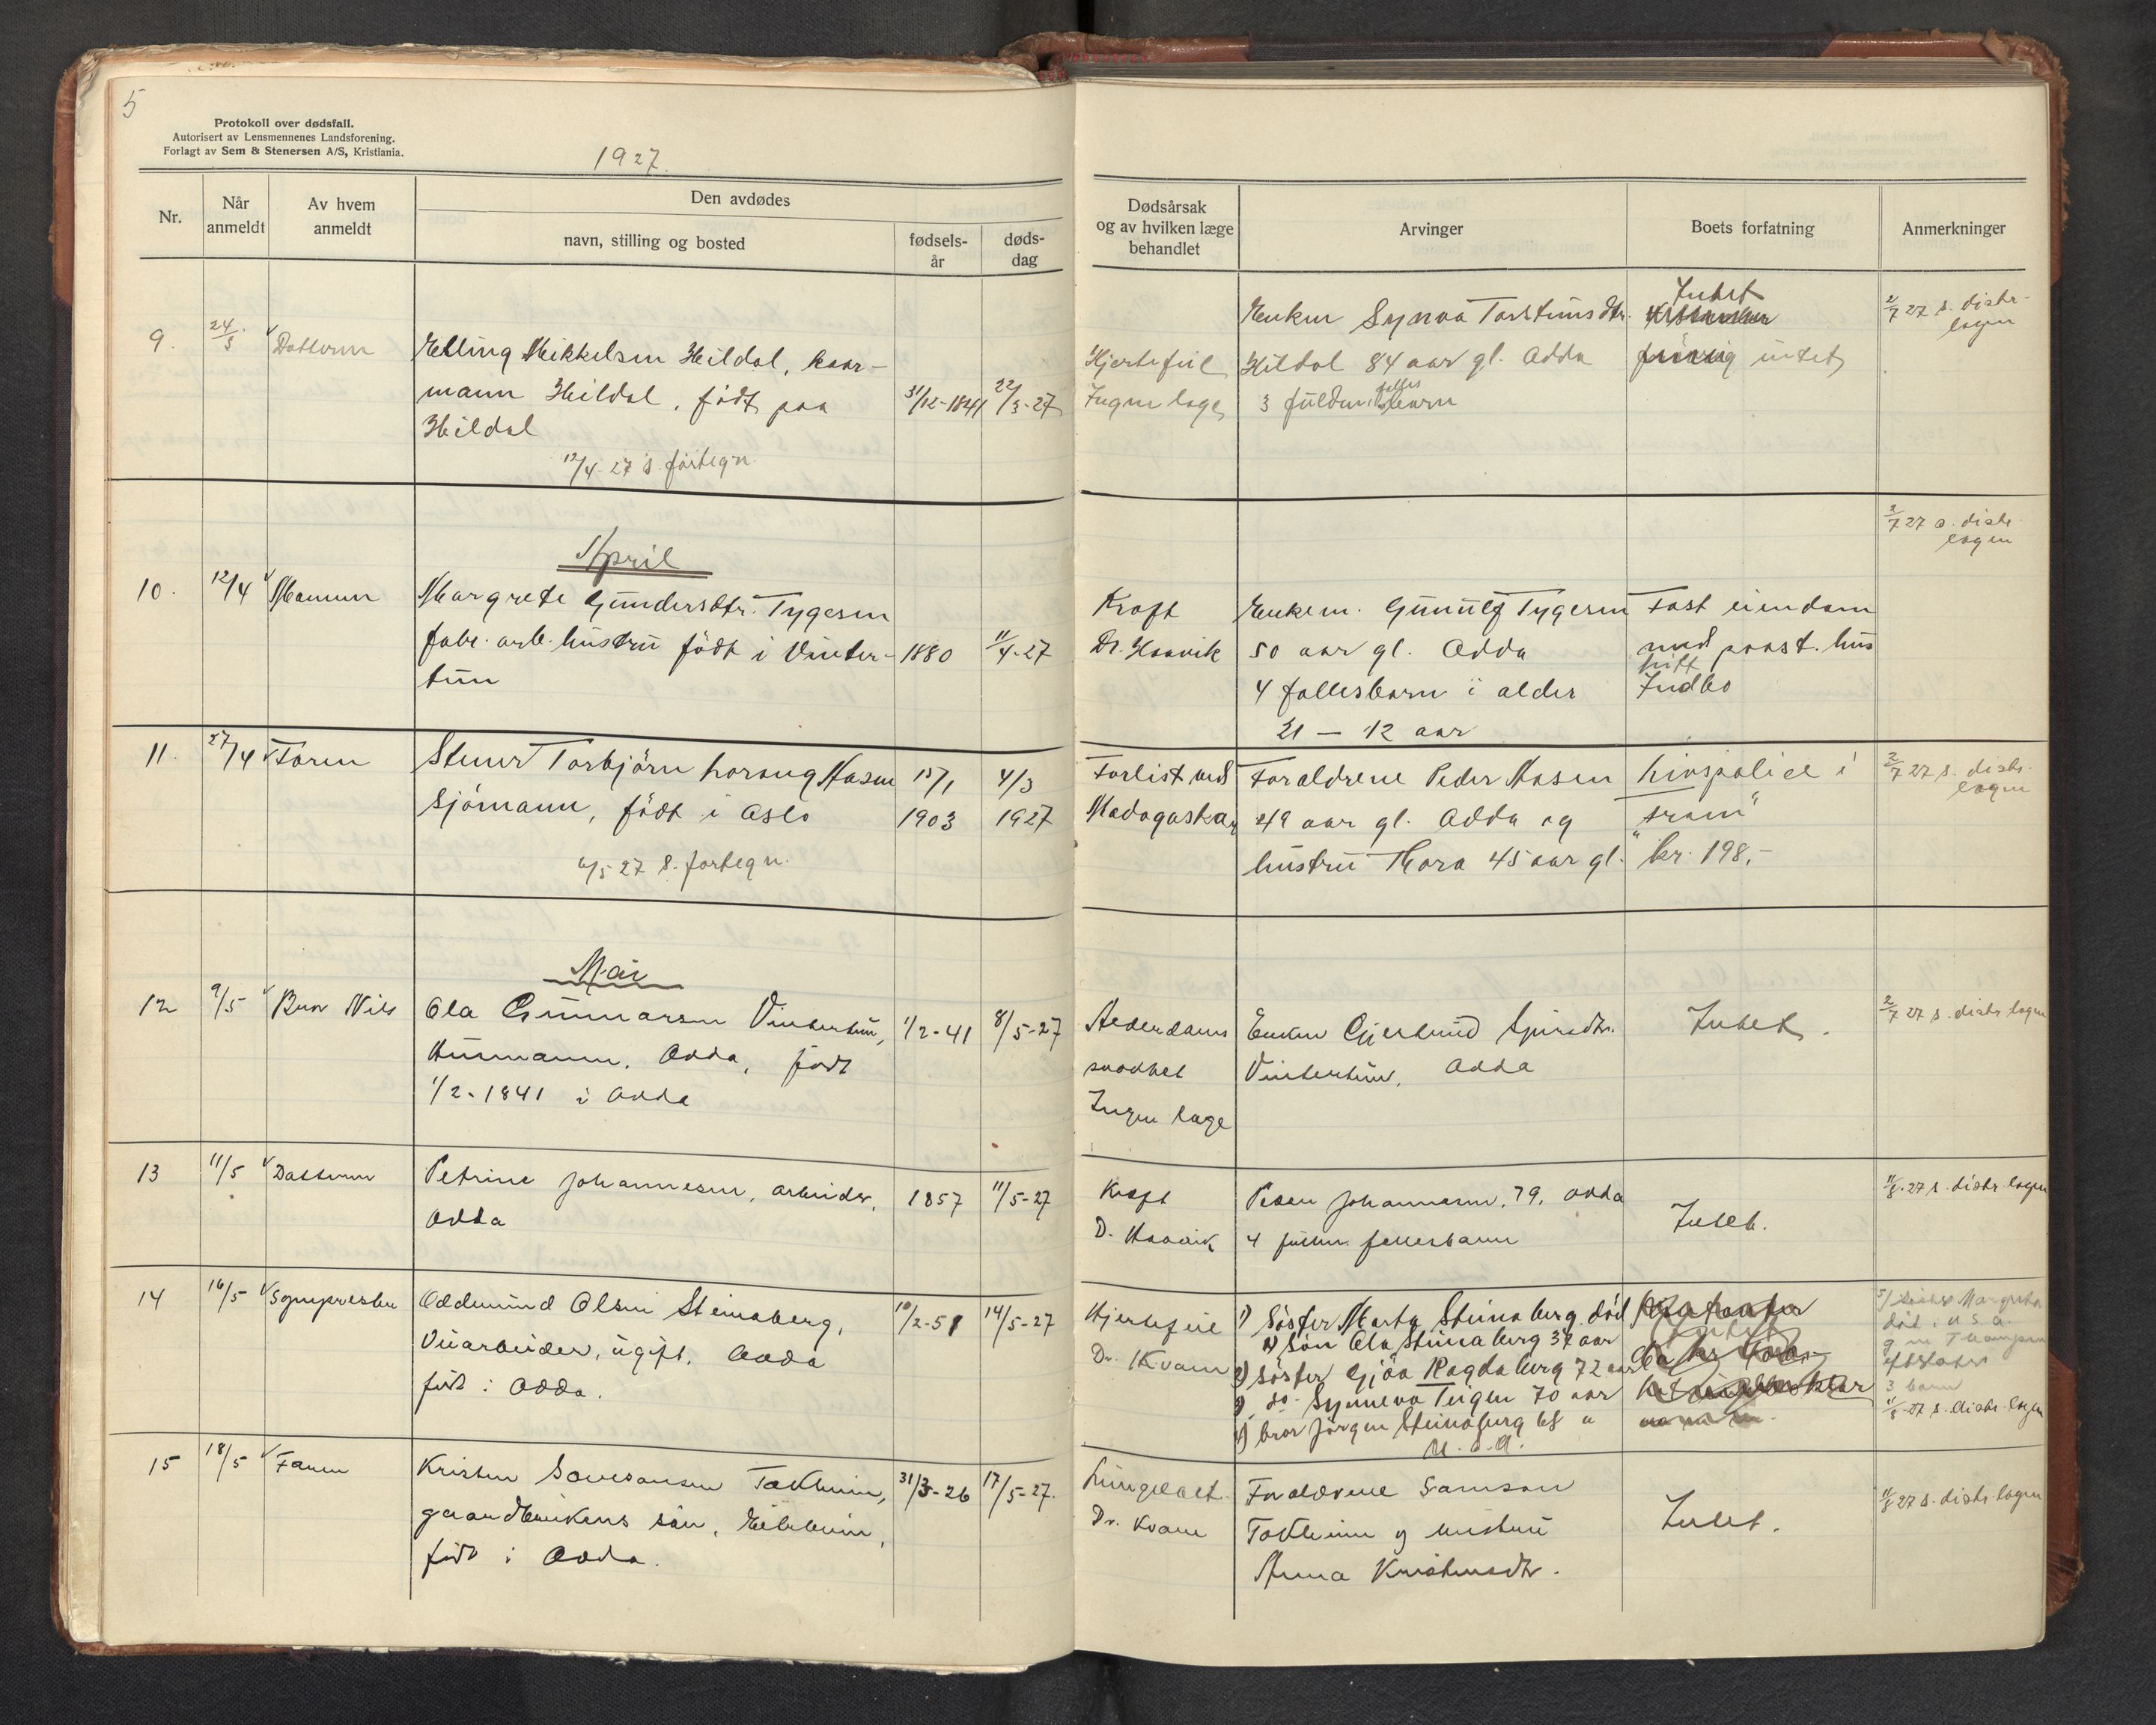 5
Protokoll over dødsfall.
Autorisert av Lensmennenes Landsforening.
Forlagt av Sem & Stenersen A/S, Kristiania.
1927.
Nr.
Når anmeldt
Av hvem anmeldt
Den avdødes
navn, stilling og bosted
fødsels-år
døds-dag
Dødsårsak og av hvilken læge behandlet
Arvinger
Boets forfatning
Anmerkninger
9. 24/3 Datteren
Elling Mikkelsen Hildal, kaar-
mann Hildal, født paa
Hildal
12/4-27 s. fortegn.
31/12-1841 22/3-27
Hjertefeil
Ingen læge
Enken Synva Torsteinsdtr.
Hildal 84 aar gl. Odda
3 fuldm. felles barn
Intet
intet
2/7 27 s. distr.
logen
April
10. 12/4 Mannen
Margrete Gundersdtr. Tygesen
fabr. arb. hustru født i Vinter-
tun
1880 11/4-27
Kræft
Dr. Haavik
Enkem. Gunulf Tygesen
50 aar gl. Odda
4 fellesbarn i alder
21 — 12 aar
Fast eiendom
med paast. hus
litt
Indbo
2/7 27 s. distr.
logen
11. 27/4 Faren
Stener Torbjörn Aasen
Sjömann, født i Oslo
6/5-27 s. fortegn.
15/1
1903
4/3
1927
Forlist ved
Madagaskar
Foreldrene Peder Aasen
49 aar gl. Odda og
hustru Thora 45 aar gl.
Livspolice i
"Fram"
kr. 198,-
2/7 27 s. distr.
logen
Mai
12 9/5 Bror Nils
Ola Gunnarsen Vintertun,
Husmann, Odda, født
1/2-1841 i Odda
1/2-41 8/5-27
Alderdoms
svakhet
Ingen læge
Enken Gjertrud
Vintertun, Odda
Intet.
2/7 27 s. distr. logen
13 11/5 Datteren
Petrine Johannesen, arbeider,
Odda
1857 11/5-27
Kræft
D. Haavik
Peder Johannesen, 79, Odda
4 fuldm. fellesbarn
Intet.
11/8-27 s. distr. logen
14 16/5 Sognepresten
Oddmund Olsen Steinaberg,
Veiarbeider, ugift, Odda
født i Odda.
10/2-51 14/5-27
Hjertefeil
Dr. Kvam
1) Söster Marta Steinaberg död
a) Sön Ola Steinaberg 37 aar
2) söster Gjöa Ragdaberg 72 aar
3) do. Synneva Teigen 70 aar
4) bror Jörgen Steinaberg 68 a
U.S.A.
5) Söster Margreta
död i U.S.A.
3 barn
11/8-27 s. distr. logen
15 18/5 Faren
Kristen Samsonsen Tokheim,
gaardbrukers sön, Eitrheim,
født i Odda.
31/3-26 17/5-27.
Lungebet.
Dr. Kvam
Foreldrene Samson
Tokheim og hustru
Anna Kristensdtr.
Intet.
11/8 27 s. distr. logen